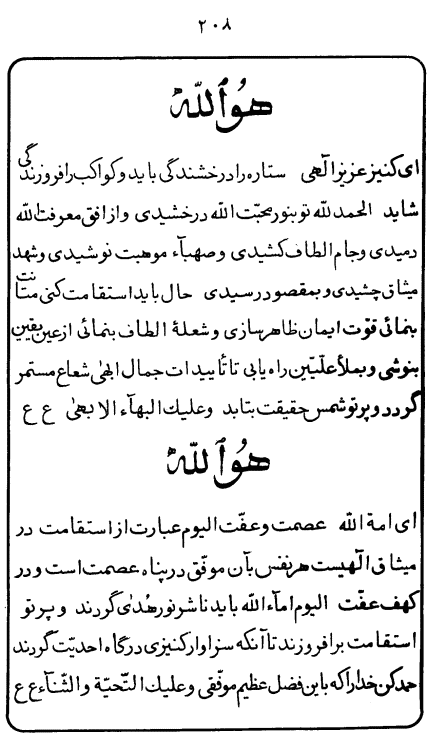 ٢٠٨
هُوَ ٱللّٰه
ای کنیز عزیز الٓهی ستاره را درخشندگی باید و کواکب را فروزندگی
شاید الحمد للّه تو بنور محبّت اللّه درخشیدی و از افق معرفت اللّه
دمیدی و جام الطاف کشیدی و صهبآء موهبت نوشیدی و شهد
میثاق چشیدی و بمقصود رسیدی حال باید استقامت کنی متانت
بنمائی قوّت ایمان ظاهر سازی و شعلهٔ الطاف بنمائی از عین یقین
بنوشی و بملأ علّیّین راه یابی تا تأییدات جمال ابهٰی شعاع مستمر
گردد و پرتو شمس حقیقت بتابد و علیك البهآء الابهیٰ ع ع
هُوَ ٱللّٰه
ای امة اللّه عصمت و عفّت الیوم عبارت از استقامت در
میثاق الٓهیست هر نفس بآن موفّق در پناه عصمت است و در
کهف عفّت الیوم امآء اللّه باید ناشر نور هُدیٰ گردند و پرتو
استقامت برافروزند تا آنکه سزاوار کنیزی درگاه احدیّت گردند
حمد کن خدا را که باین فضل عظیم موفّقی و علیك التّحیّة و الثّنآء ع ع